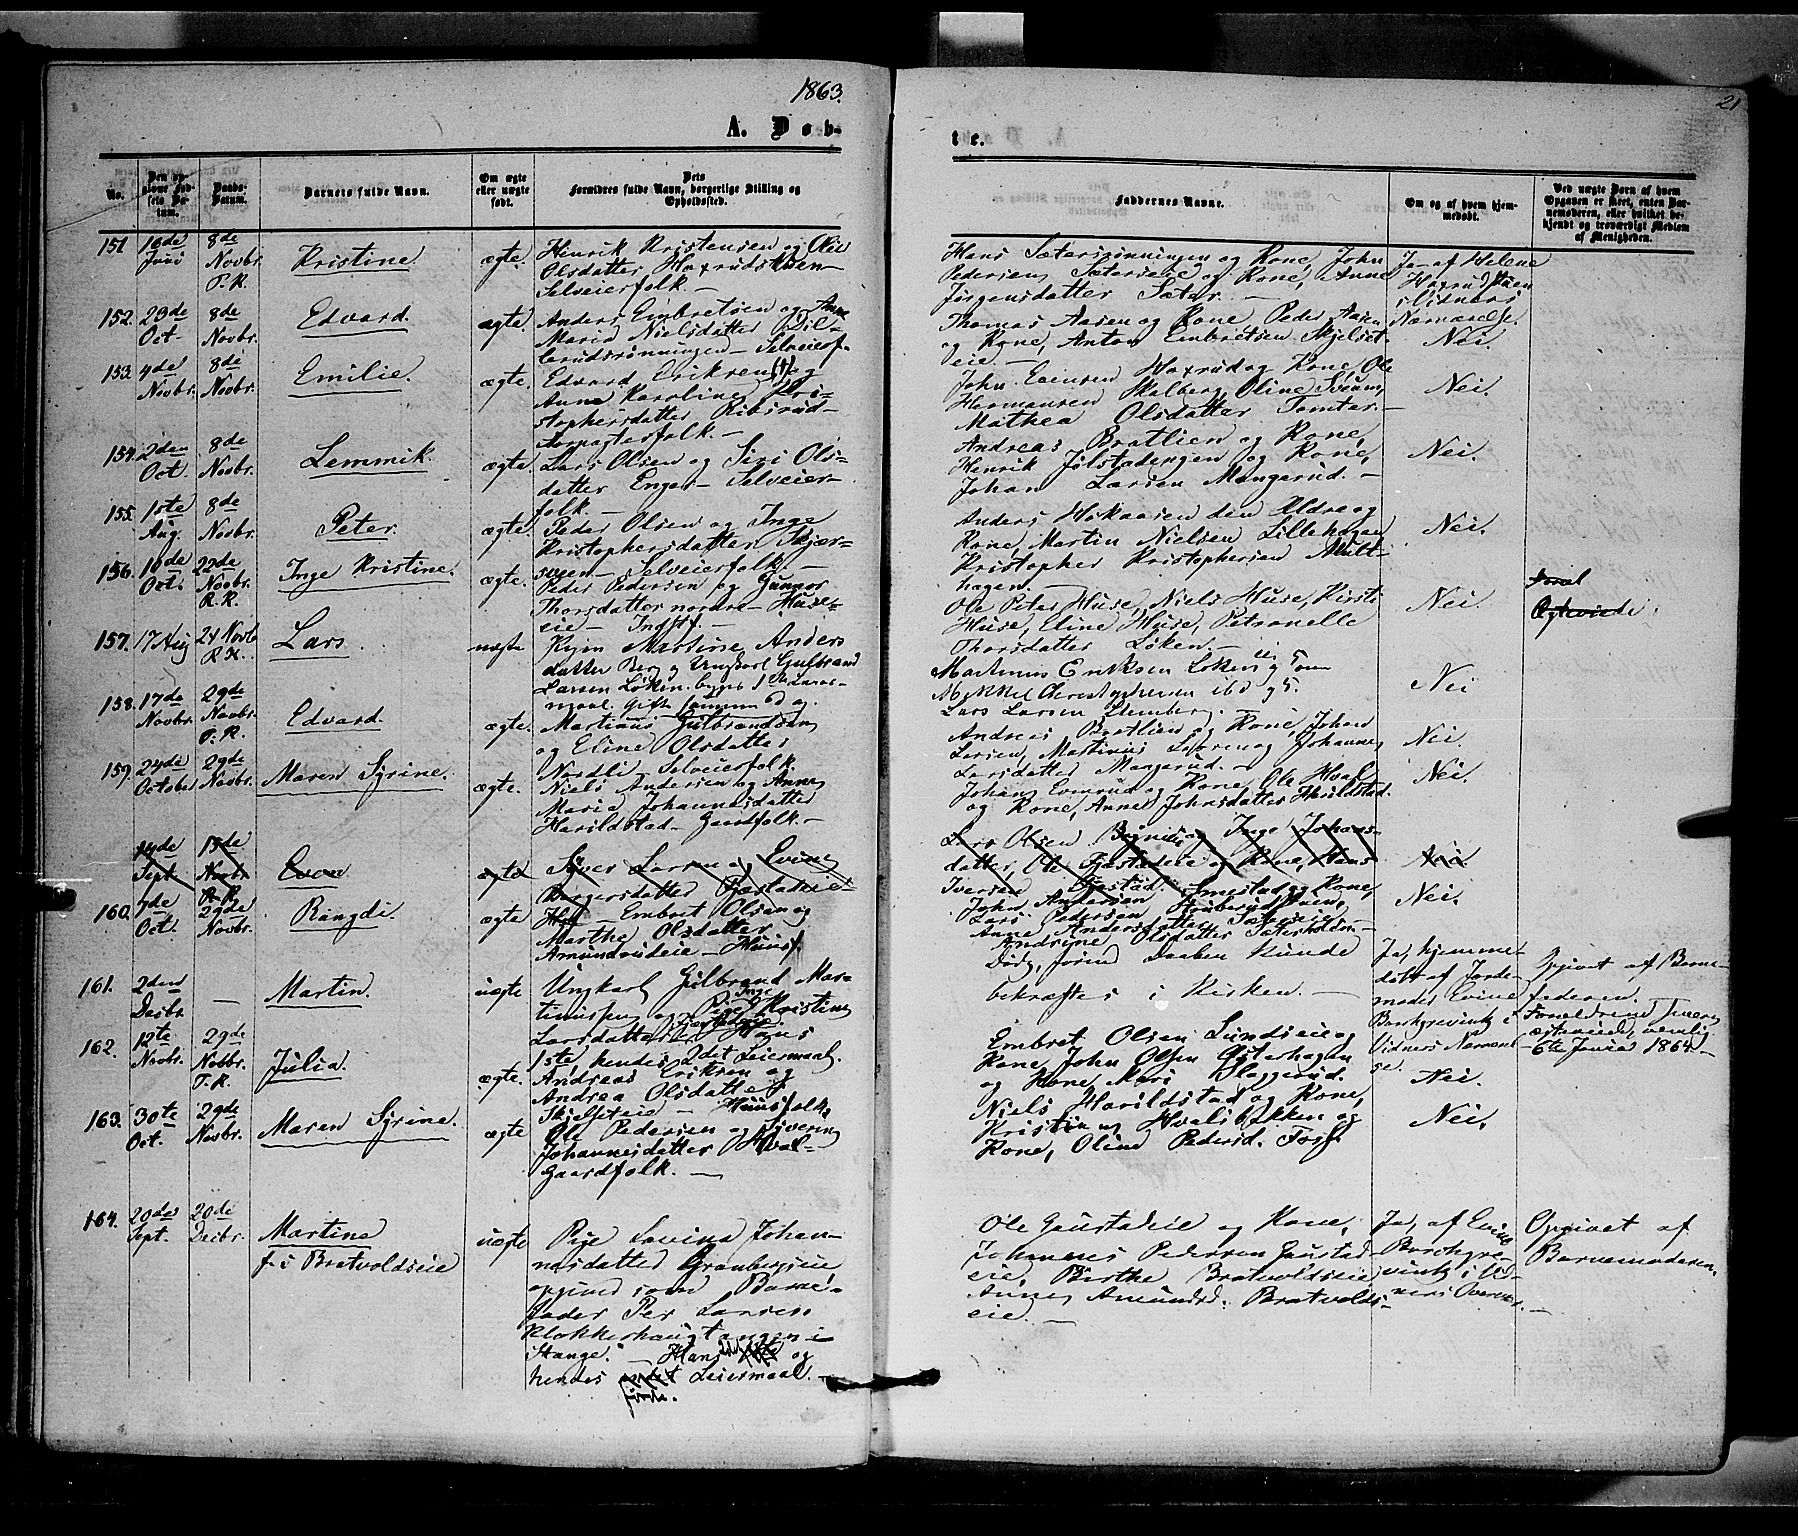 1863.
21
A. Døb-
te.
No.
Den op-
givne Fød-
sels Da-
tum.
Daabs-
Datum.
Barnets fulde Navn.
Om ægte
eller uægte
født.
Dets
Forældres fulde Navn, borgerlige Stilling og
Opholdssted.
Faddernes Navne.
Om og af hvem hjem-
medøbt.
Ved uægte Børn af hvem
Opgaven er skeet, enten Bar-
nemoderen, eller hvilket be-
kjendt og troværdigt Medlem
af Menigheden.
151. 16de Juni 8de Novbr. T.K. Kristine ægte.
Henrik Kristensen og Olia
Olsdatter Haxrudstuen
Selveierfolk
Hans Sætersrønningen og Kone, John
Pedersen Sæterseie og Kone, Anne
Jörgensdatter Sæter. —
Ja - af Helene
Haxrudstuen
i Vidners
Nærværelse.
152. 29de Oct. 8de Novbr. Edvard ægte
Anders Embretsen og Anne
Maria Nielsdatter
brudsrønningen - Selveierf.
Thomas Aasen og Kone Peder Aasen
og Kone, Anton Embretsen Skjelset-
eie. —
Nei
153. 4de Novbr. 8de Novbr. Emilie. ægte.
Edvard Eriksen og
Anne Karoline Kri-
stophersdatter Ribsrud-
Forpagterfolk. —
John Evensen Haxrud og Kone, Ole
Hermansen Skalberg, Oline Sveum,
Mathea Olsdatter Tomter. —
Nei.
154. 2den Oct. 8de Novbr. Lemmik. ægte
Lars Olsen og Siri Ols-
datter Enger - Selveier-
folk. —
Andreas Bratlien og Kone,
Henrik Jølstadengen og Kone,
Johan Larsen Mangerud. —
Nei.
155. 1ste Aug. 8de Novbr. Peter. ægte.
Peder Olsen og Inge
Kristophersdatter Skjær-
sveen - Selveierfolk. —
Anders Hokaasen den Ældre og
Kone, Martin Nielsen Lillehagen
Kristopher Kristophersen Mult-
hagen —
Nei.
156. 10de Oct. 22de Novbr. R.K. Inge Kristine. ægte.
Peder Pedersen og Gunnor
Thorsdatter nordre Huse-
eie - Indstf. —
Ole Peter Huse, Niels Huse, Kirsti
Huse, Eline Huse, Petronelle
Thorsdatter Løken. —
Nei.
157. 17 Aug 24 Novb R.K. Lars uægte
Pigen Martine Anders
datter Berg og Ungkarl Gulbrand
Larsen Løken. begges 1 Leiermaal.
Martinus Eriksen Løken og
Mikkel Christophersen
Lars Larsen Stenberg. —
Nei
158. 17de Novbr. 29de Novbr. T.K. Edvard ægte.
Martinus Gulbrandsen
og Eline Olsdatter
Nordli - Selveierfolk.
Andreas Bratlien og Kone, Johan
Larsen, Martinus Løken og Johanne
Larsdatter Mangerud. —
Nei.
159. 24de October 29de Novbr. Maren Syrine. ægte.
Niels Andersen og Anne
Maria Johannesdatter
Harildstad - Gaardfolk. —
Johans Evenrud og Kone, Ole Hval
og Kone, Anne Johnsdatter Harildstad.
Nei.
14de Sept. 15de Novbr. R.K. Even ægte
Siver Larsen og Evine
Birgersdatter Fjæstadeie
Lars Olsen og Inge Johans-
datter, Ole Fjæstadeie og Kone, Hans
Iversen Fjæstad.
Nei.
160. 7de Oct. 29de Novbr. Rangdi. ægte
Embret Olsen og
Marthe Olsdatter
Amundrudeie - Huusf.
John Andersen Smestad og Kone,
Lars Pedersen Struberudstuen,
Anne Andersdatter Sæterseie,
Andrine Olsdatter Sæterholen.
Nei.
161. 2den Decbr. — Martin. uægte
Ungkarl Gulbrand Mar-
tinussen og Pige Inge Kristine
Larsdatter Hans
1ste hendes 2det Leiermaal.
Död, förend Daaben kunde
bekræftes i Kirken. —
Ja, hjemme-
døbt af Jorde-
moder Evine
Borchgrevink i
Vidners Nærværel-
se.
Opgivet af Barne-
faderen. —
Forældrene
ægteviede,
6te Juni 1864 —
162. 12te Novbr. 29de Novbr. T.K. Julia. ægte.
Andreas Eriksen og
Andrea Olsdatter
Skjelseteie - Huusfolk.
Embret Olsen Lundseie og
Kone, John Olsen Østerhagen
og Kone, Mari Flaggerud.
Nei.
163. 30te Oct. 29de Novbr. Maren Syrine. ægte
Ole Pedersen og Syverine
Johannesdatter Hval -
Gaardfolk. —
Niels Harildstad og Kone,
Kristian Hvalsbakken og
Kone, Oline Pedersd. Foss.
Nei.
164. 20de Sept. 20de Decbr. Martine
f. i Bratvoldseie uægte
Pige Lovina Johan-
nesdatter Granbergseie
opgived som Barne-
fader Per Larsen
Klokkerhaugtangen i
Stange. — Hans og
hendes første Leiermaal. —
Ole Gaustadeie og Kone,
Johannes Pedersen Gaustad-
eie, Birthe Bratvoldseie,
Anne Amundsd. Bratvolds-
eie. —
Ja, af Evine
Borchgre-
vink i Vid-
ners Overvær
Opgivet af
Barnemoderen.
—